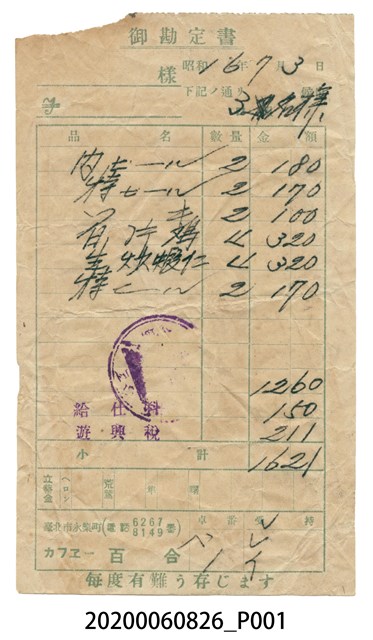 御勘定書
昭和16年7月3日
様
下記ノ通リ
品名 数量 金額
ビール 2 180
特ビール 2 170
2 100
鶏 4 320
炒蝦仁 4 320
特ビール 2 170
1260
給仕料 150
遊興税 211
小計 1621
立替金
年 月 曜
臺北市永樂町(電話6267 8149番)
卓番 受持
カフヱー 百合
毎度有難う存じます
20200060826_P001